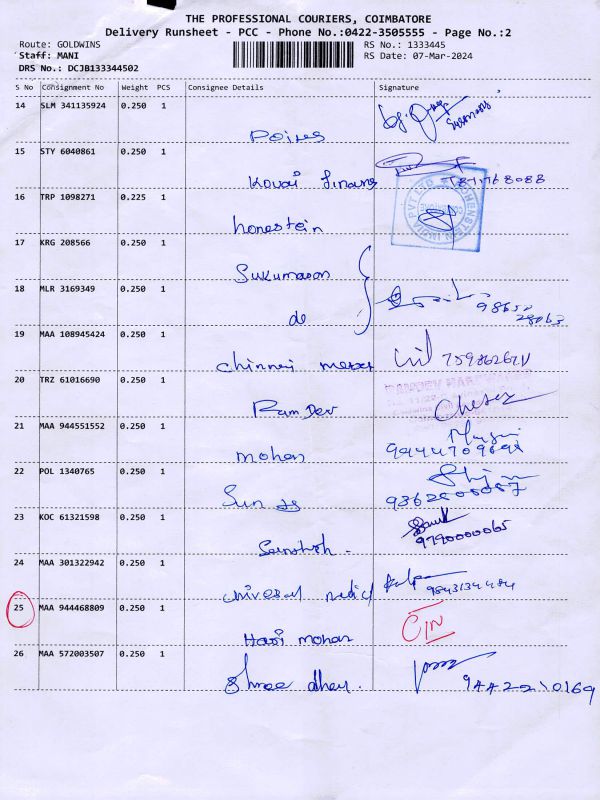 THE PROFESSIONAL COURIERS, COIMBATORE
Delivery Runsheet - PCC - Phone No.:0422-3505555 - Page No.:2
Route: GOLDWINS RS No.: 1333445
Staff: MANI RS Date: 07-Mar-2024
DRS No.: DCJB133344502
S No Consignment No Weight PCS Consignee Details Signature
14 SLM 341135924 0.250 1
15 STY 6040861 0.250 1
Kovai finans
16 TRP 1098271 0.225 1
honestein
17 KRG 208566 0.250 1
Sukumaran
18 MLR 3169349 0.250 1
do
19 MAA 108945424 0.250 1
chinnai
20 TRZ 61016690 0.250 1
Ram Dev
21 MAA 944551552 0.250 1
mohan
22 POL 1340765 0.250 1
Sun
23 KOC 61321598 0.250 1
Santhosh. 9790000065
24 MAA 301322942 0.250 1
25 MAA 944468809 0.250 1
Hari mohan
26 MAA 572003507 0.250 1
Shree dhar. 9442210169